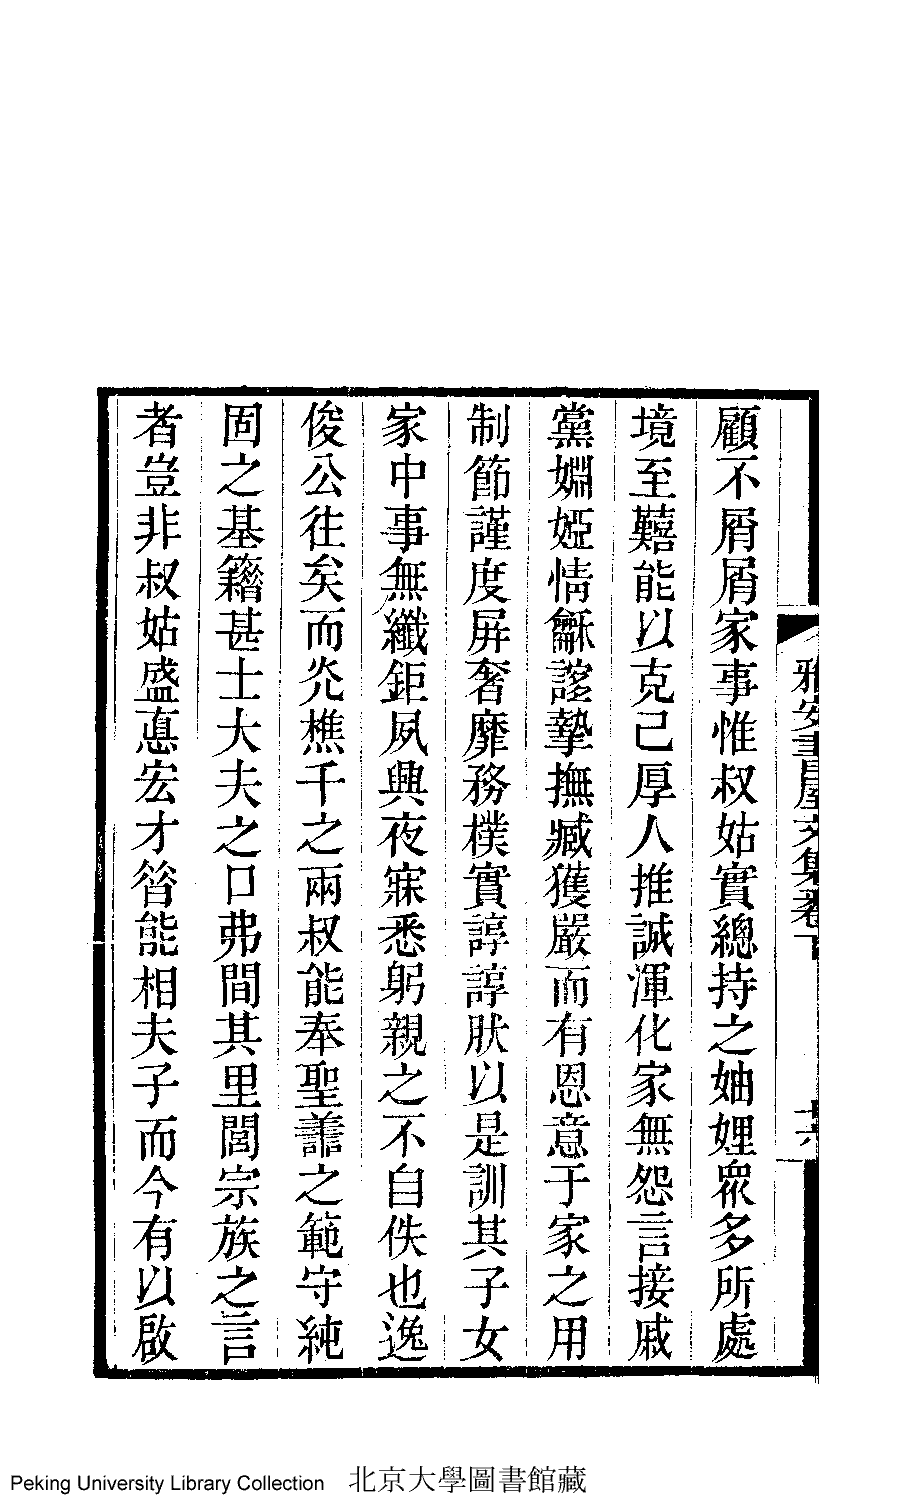 顧不屑屑家事惟叔姑實總持之妯娌衆多所處
境至囏能以克己厚人推誠渾化家無怨言接戚
黨婣婭情龢誼摯撫臧獲嚴而有恩意于家之用
制節謹度屏奢靡務樸實諄諄肰以是訓其子女
家中事無纖鉅夙興夜寐悉躬親之不自佚也逸
俊公往矣而灮樵千之兩叔能奉聖譱之範守純
固之基籍甚士大夫之口弗間其里閭宗族之言
者豈非叔姑盛悳宏才睂能相夫子而今有以啟
雅安書屋文集卷下
Peking University Library Collection 北京大學圖書館藏